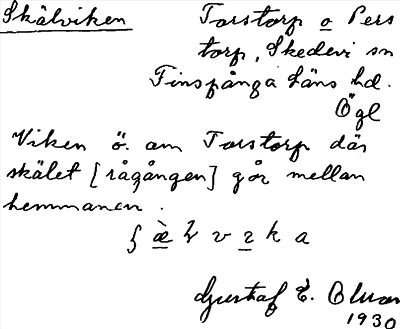 Skälviken Torstorp o Pers
torp, Skedevi sn
Finspånga läns hd.
Ögl
Viken ö. om Torstorp där
skälet [rågången] går mellan
hemmanen.
Gustaf E.
1930